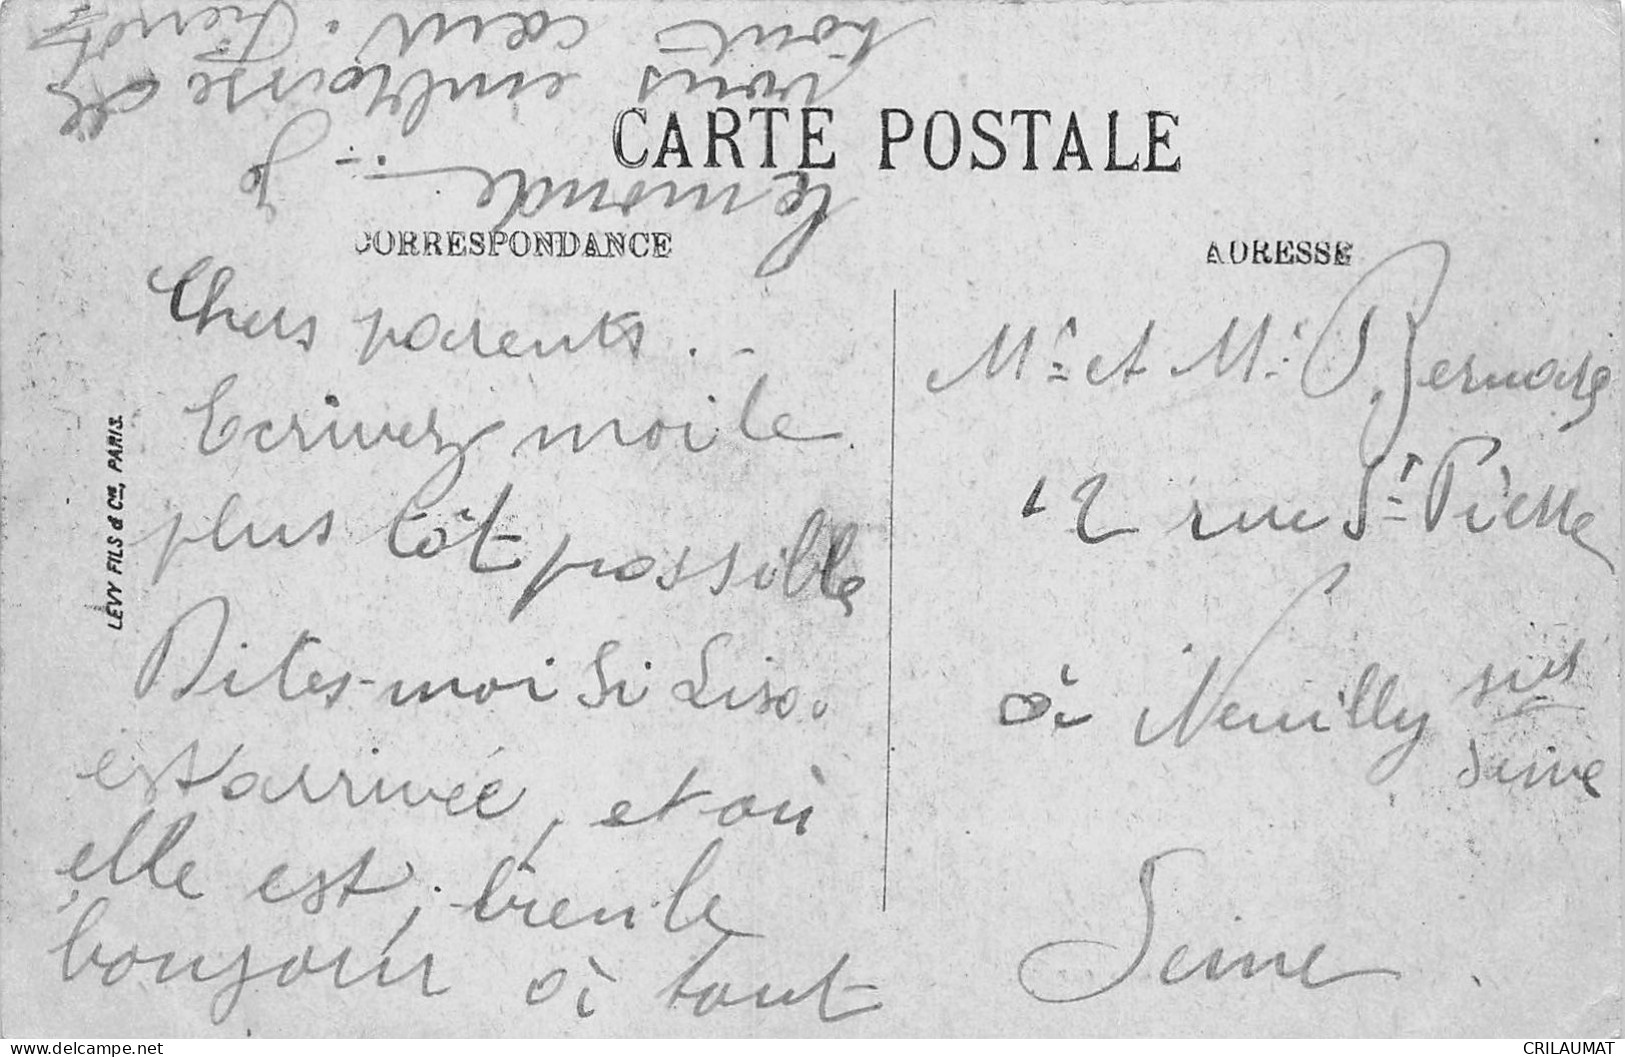 CARTE POSTALE
CORRESPONDANCE
ADRESSE
Chers parents. -
Ecrivez moi le
plus tôt possible
Dites-moi si Lisa
est arrivée, et où
elle est, bien le
bonjour à tout
le monde. - Je
vous embrasse de
tout cœur. Pierrot
Mr et Mr Bernard
12 rue St Pierre
à Neuilly sur
Seine
Seine
LÉVY FILS & Cie, PARIS.
CRILAUMAT